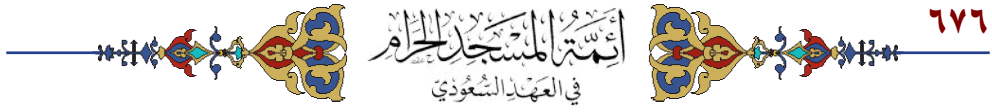 ٦٧٦
أَئِمَّةُ المَسْجِدِ الحَرَامِ
فِي العَهْدِ السُّعُودِيّ